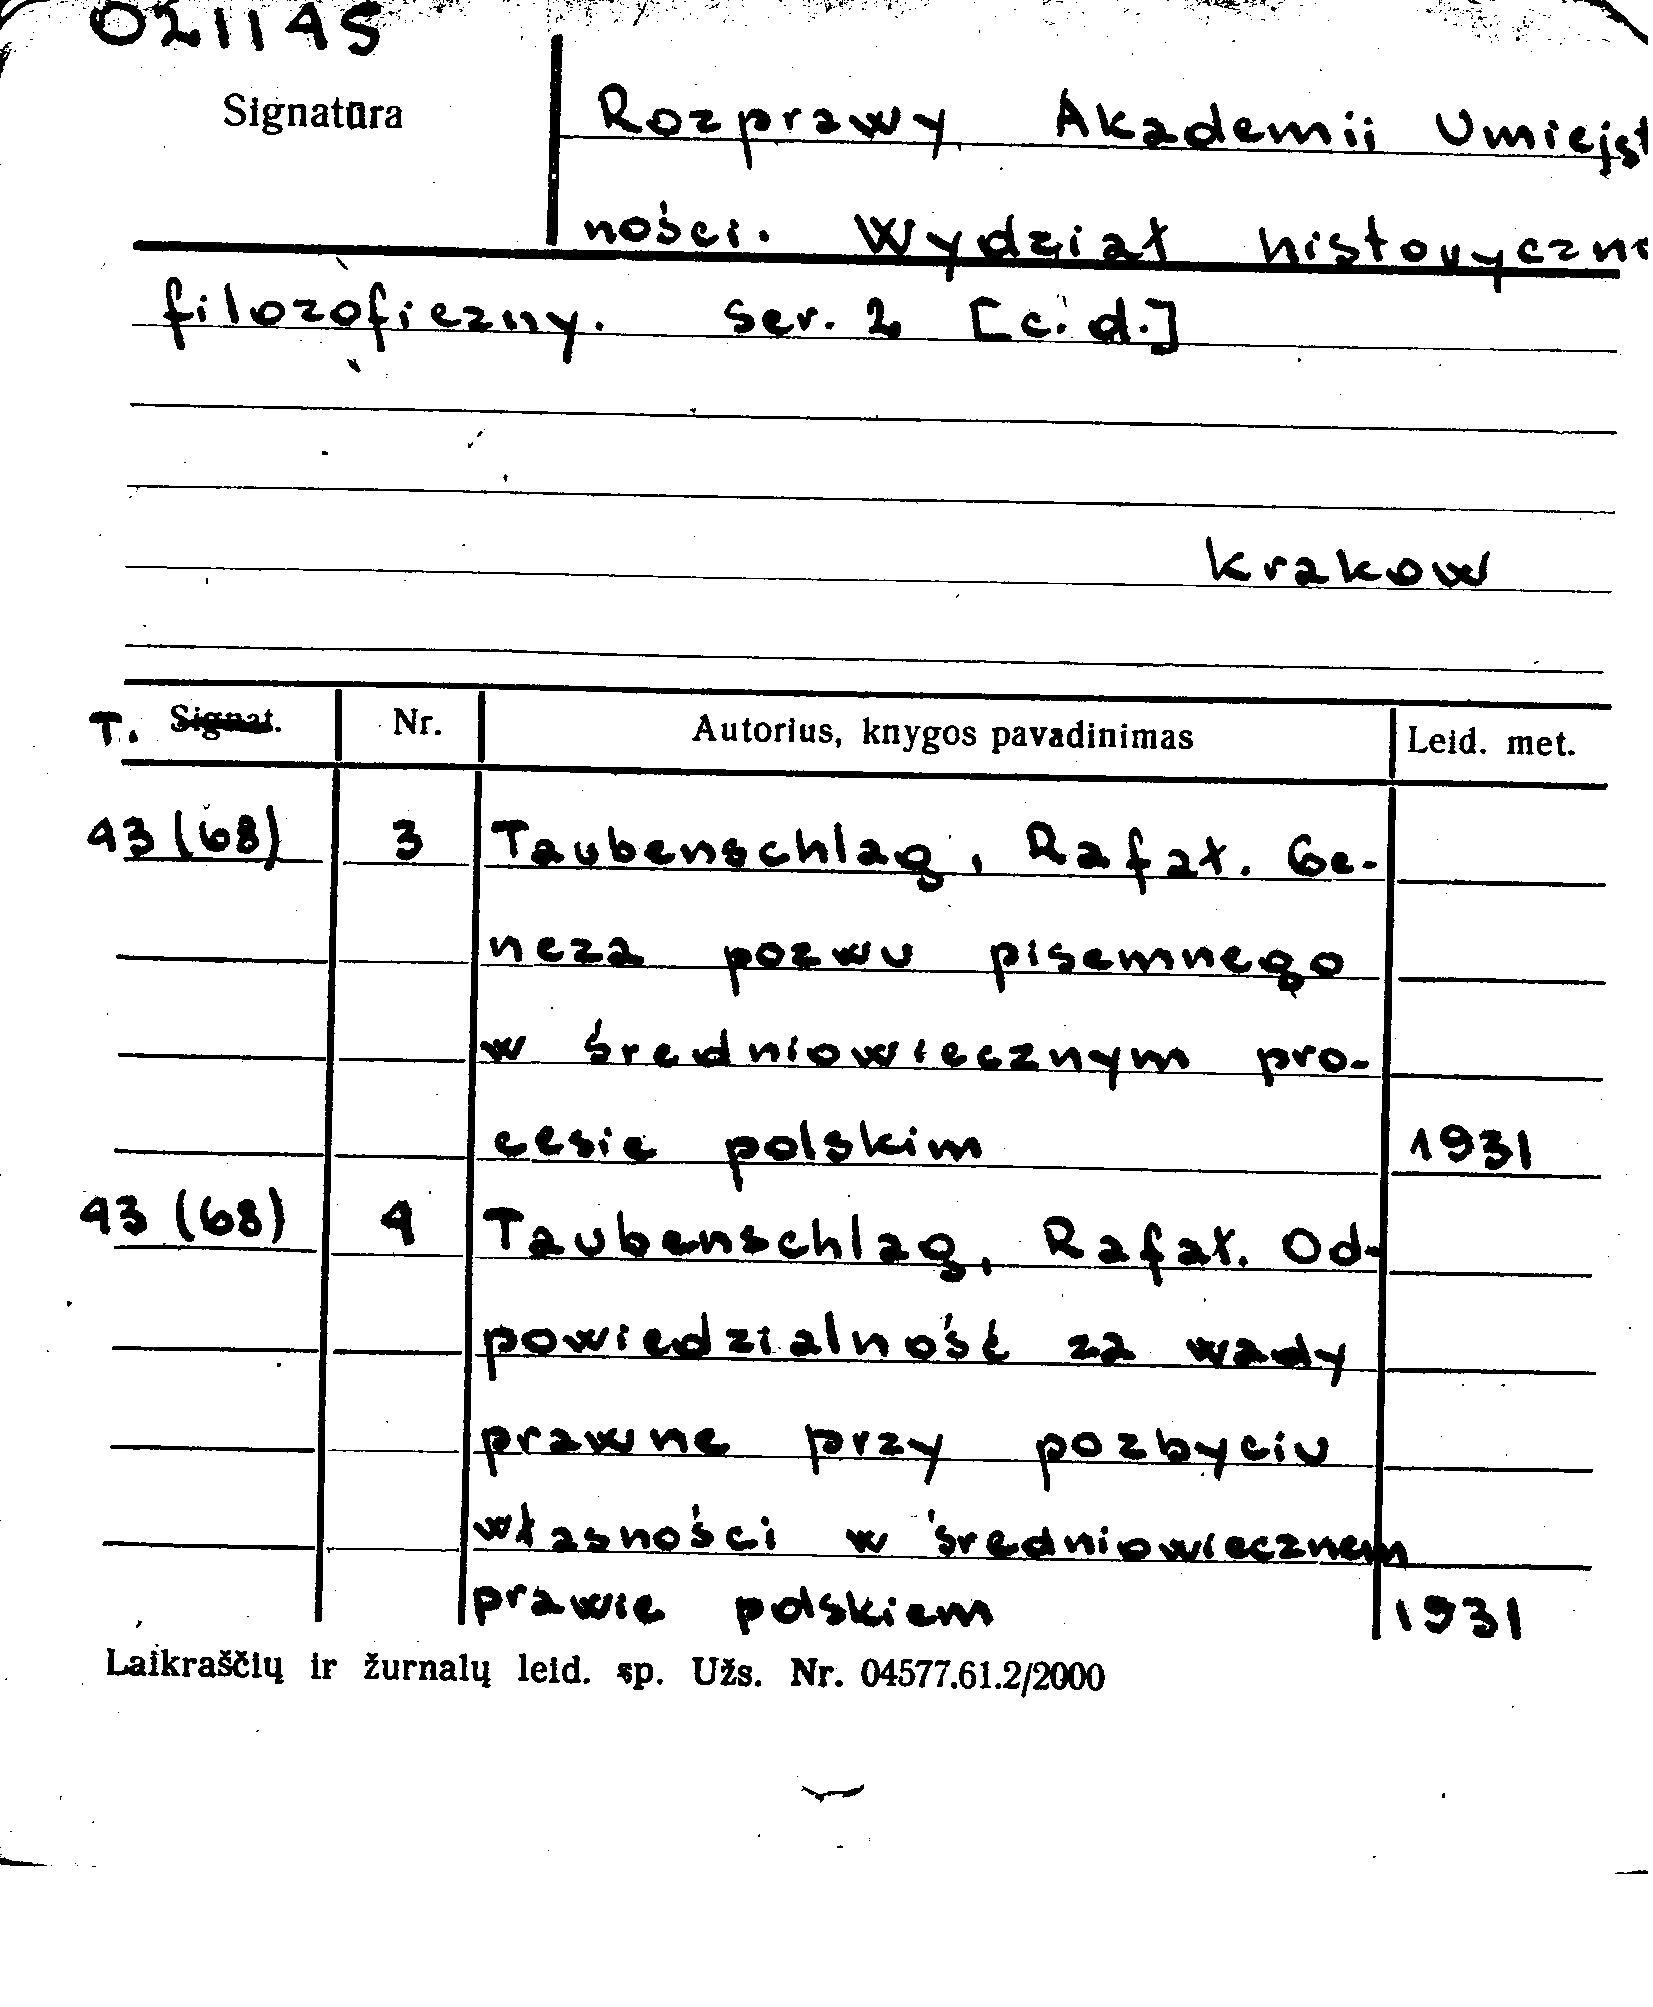 021145
Signatūra
Rozprawy Akademii Umiejęt
ności. Wydział historyczno
filozoficzny. Ser. 2 [c.d.]
Krakow
T. Signat. Nr. Autorius, knygos pavadinimas Leid. met.
43 (68) 3 Taubenschlag, Rafał. Ge-
neza pozwu pisemnego
w średniowiecznym pro-
cesie polskim 1931
43 (68) 4 Taubenschlag, Rafał. Od-
powiedzialność za wady
prawne przy pozbyciu
własności w średniowiecznem
prawie polskiem 1931
Laikraščių ir žurnalų leid. sp. Užs. Nr. 04577.61.2/2000